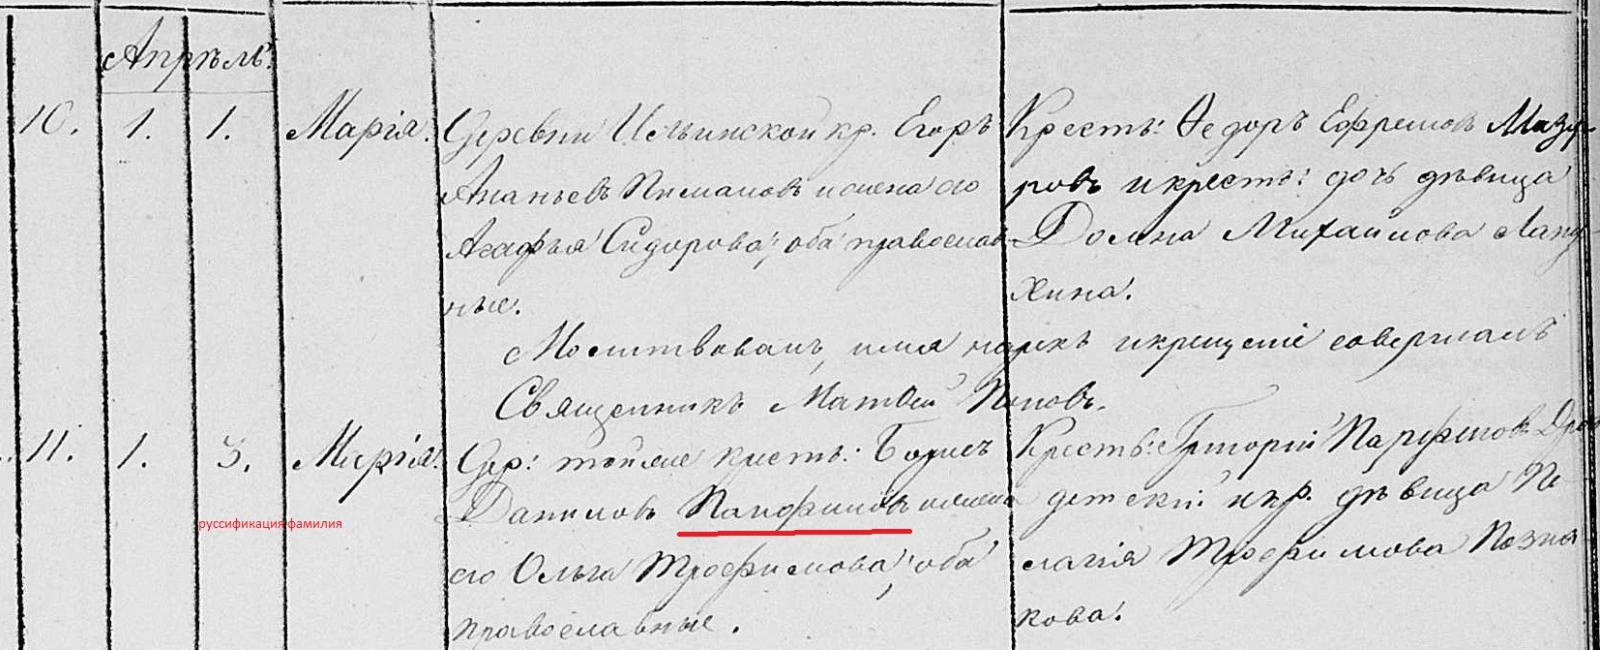 Апрѣль.
10. 1. 1. Марія. Деревни Ильинской кр. Егоръ
Ананьевъ Пималовъ и жена его
Агафья Сидорова; оба православ-
ные.
Крест: Ѳедоръ Ефремовъ Мазу-
ровъ и крест: дочь дѣвица
Домна Михайлова Лапу-
хина.
Молитвовалъ, имя нарекъ и крещеніе совершалъ
Священникъ Матѳей Поповъ.
11. 1. 3. Марія. Дер: той же крест: Борисъ
Даниловъ Панфиловъ и жена
его Ольга Трофимова; оба
православные.
Крест: Григорій Парфеновъ
детскій и кр. дѣвица Пе-
лагія Трофимова Позня-
кова.
руссификация фамилия